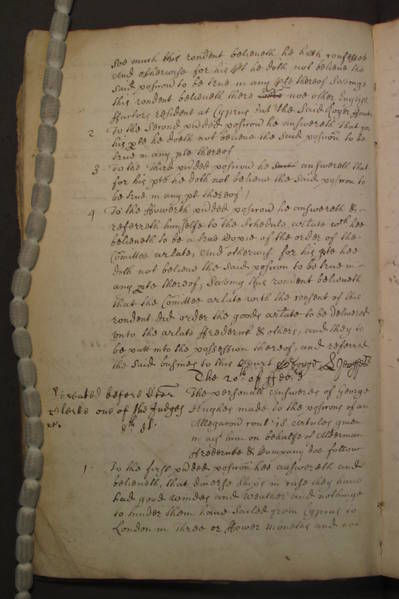 soe much this rendent beleeveth he hath confessed
and otherwise for his pte he doth not beleeve the
said posicion to be true in any pte thereof Saveinge
this rendent beleeveth there noe other English
ffactors resident at Cyprus but the said Roger
2 To the second pnded posicion he answereth that for
his pte he doth not beleeve the said posicion to be
true in any pte thereof
3 To the third pnded posicion he answereth that
for his pte he doth not beleeve the said posicion to
be true in any pte thereof /
4 To the ffowerth pnded posicion he answereth &
referreth himselfe to the Schedule arlate wch hee
beleeveth to be a true Coppie of the order of the
Comittee arlate, and otherwise for his pte hee
doth not beleeve the said posicion to be true in
any pte thereof, Saveing this rendent beleeveth
that the Comittee arlate with the consent of this
rendent did order the goods arlate to be delivered
unto the arlate ffrederick & others, and they to
be putt into the possession thereof, and referred
the said busines to this Court George
The 20th of
Repeated before Doctor
Clerke one of the Judges
The personall answeres of George
Hughes made to the posicions of an
Allegacion
on behalfe of Alderman
ffrederick & Company doe follow
1 To the first pnded posicion hee answereth and
beleeveth, that diverse shipps in case they have
had good windes and weather and nothinge
to hinder them have sailed from Cyprus to
London in three or ffower moneths and